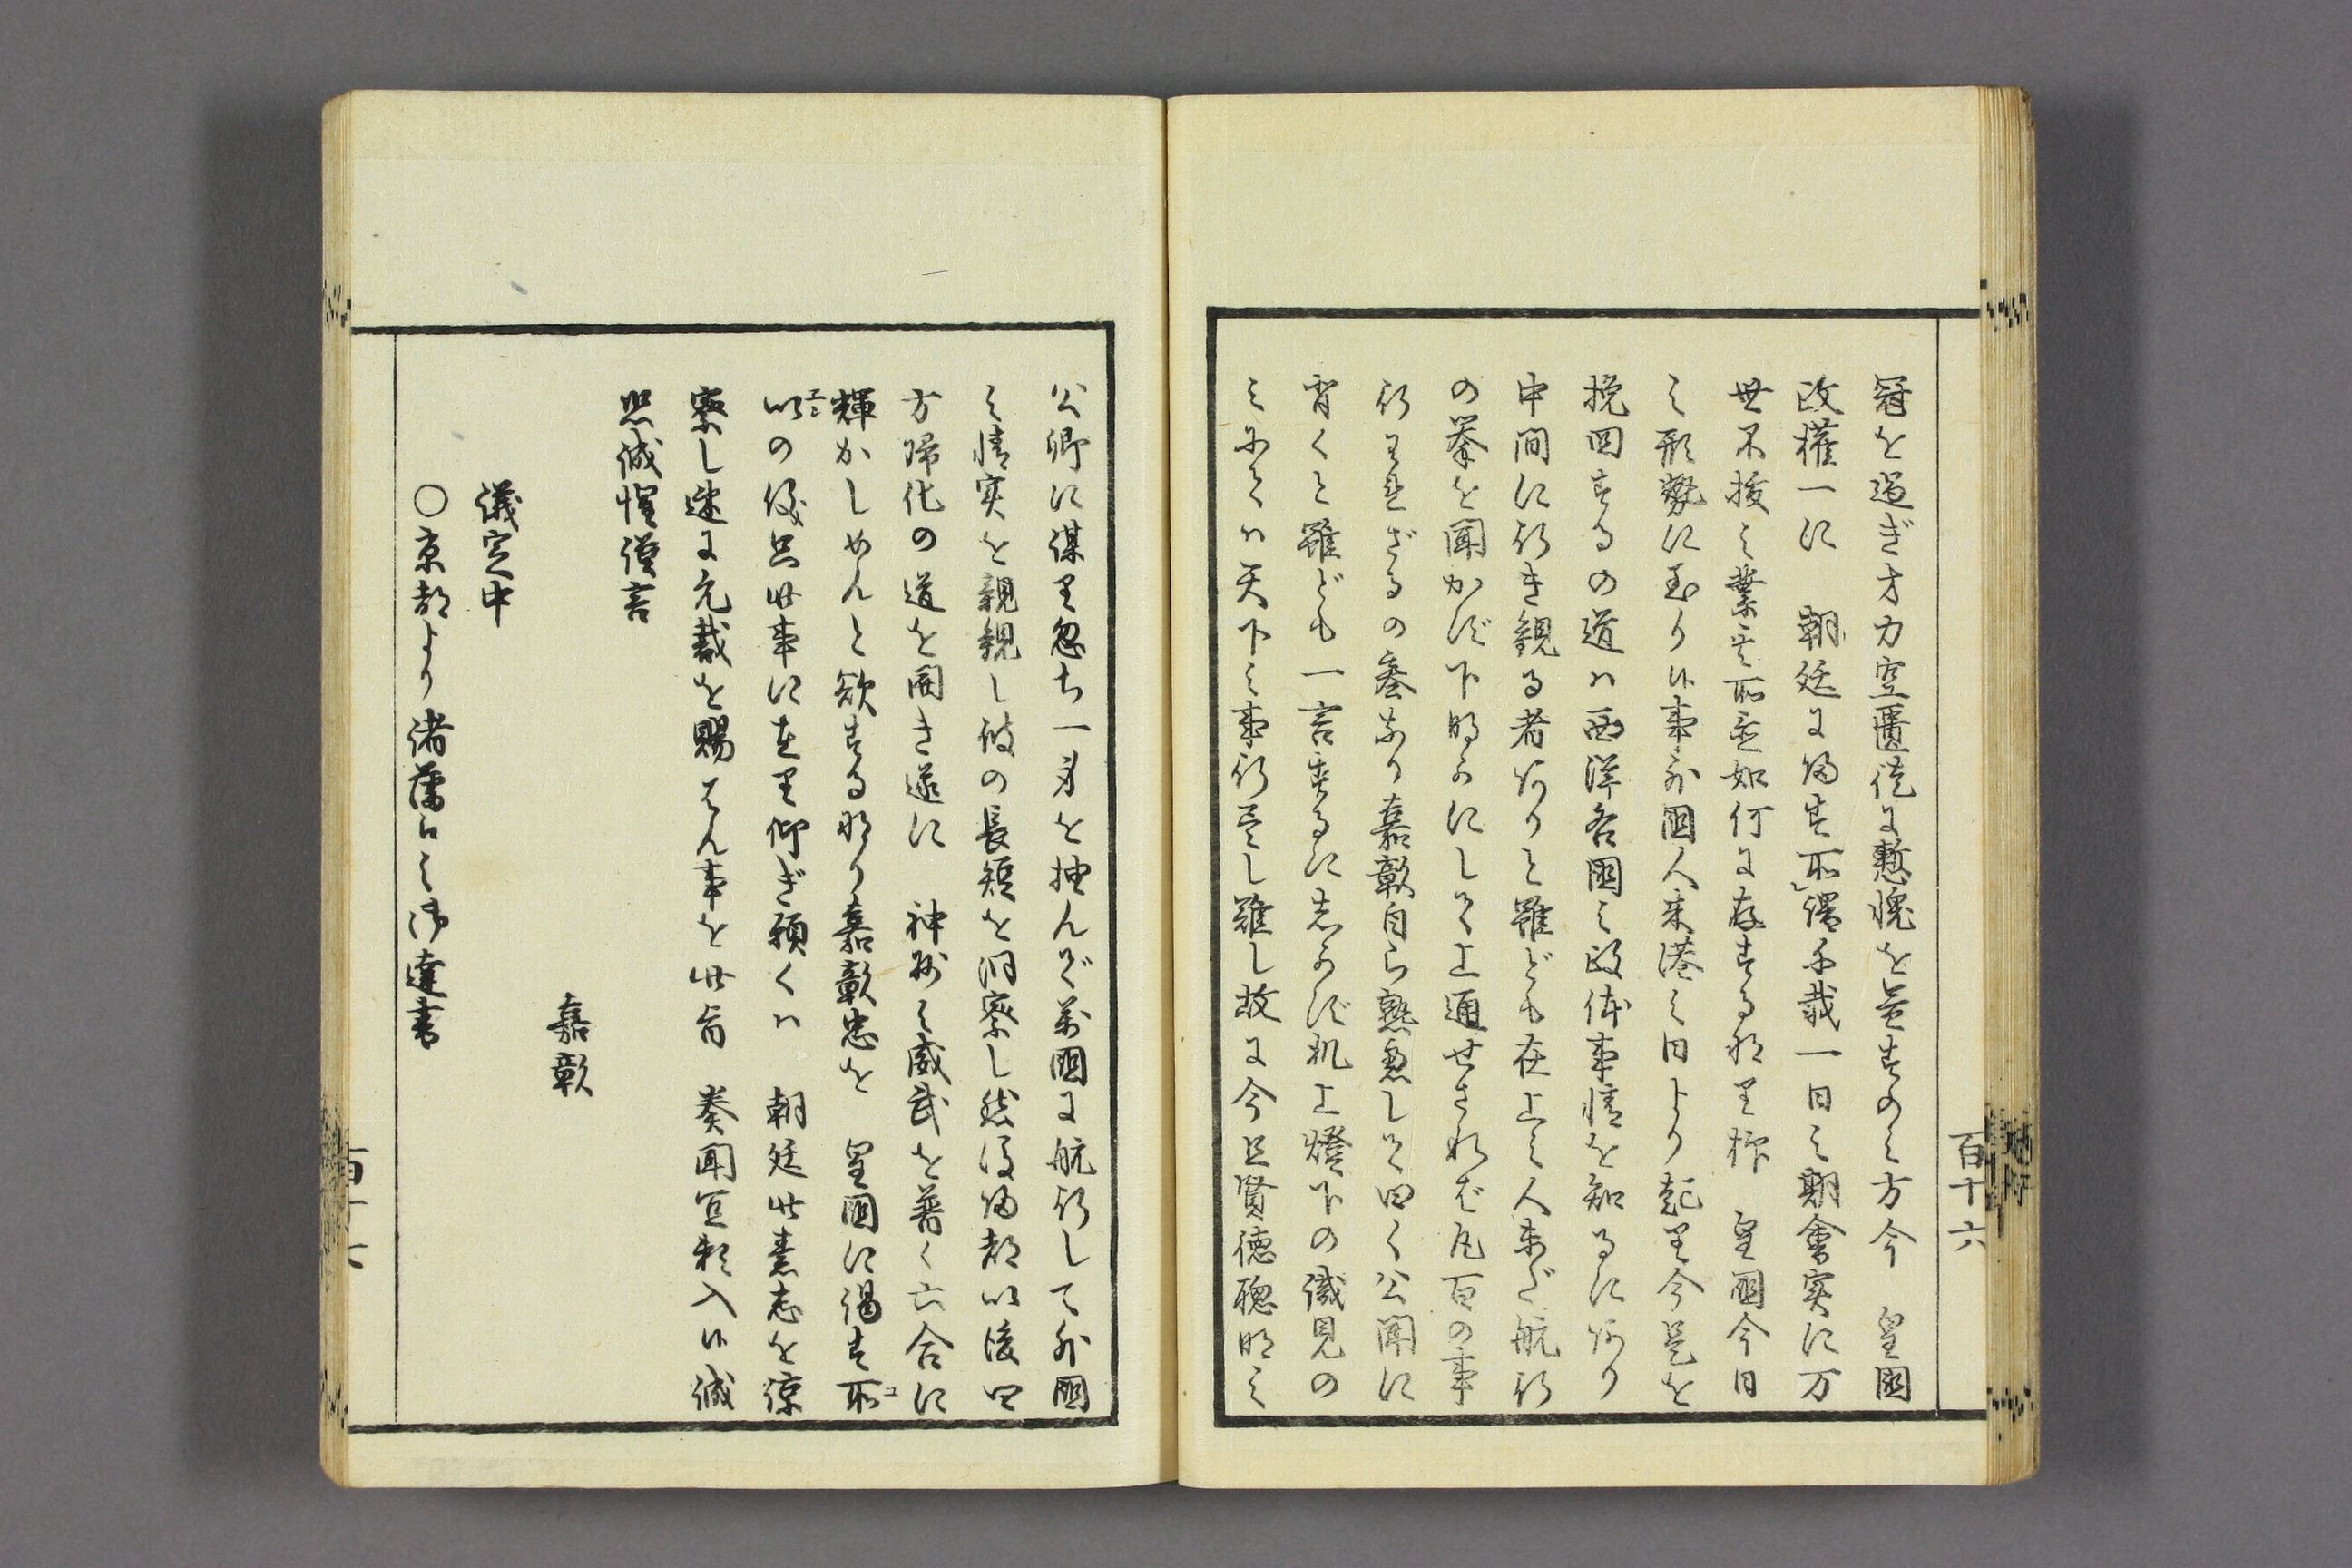 百十六
冠を過ぎ才力空匱徒に慙愧を益すのミ方今　皇国
政権一に　朝廷に帰す所謂千載一日之期會実に万
世不抜之業其所置如何に存する耶里抑　皇国今日
之形勢に至り候事外国人来港之日より起里今是を
挽回するの道ハ西洋各国之政体事情を知るに阿り
中間に行き観る者阿りと雖ども在上之人未だ航行
の挙を聞かず下明らかにして上通せされバ凡百の事
行王連ざるの姿なり嘉彰自ら熟慮して曰く公聞に
背くと雖ども一言するに志らず机上燈下の儀見の
ミ尓てハ天下之事行尽し難し故に今且賢徳聡明之
公卿に謀里忽ち一身を抽んで萬国に航行して外国
之情実を親観し彼の長短を洞察し然後帰都以後四
方帰化の道を開き遂に　神州之威武を普く六合に
輝かしめんと欲する那り嘉彰忠を　皇国に竭す所
以の役只此事に在里仰ぎ願くハ　朝廷此素志を諒
察し速に允裁を賜はん事を此旨　奏聞宜頼入候誠
恐誠惶謹言
嘉彰
議定中
○京都より諸藩江之御達書
百十七